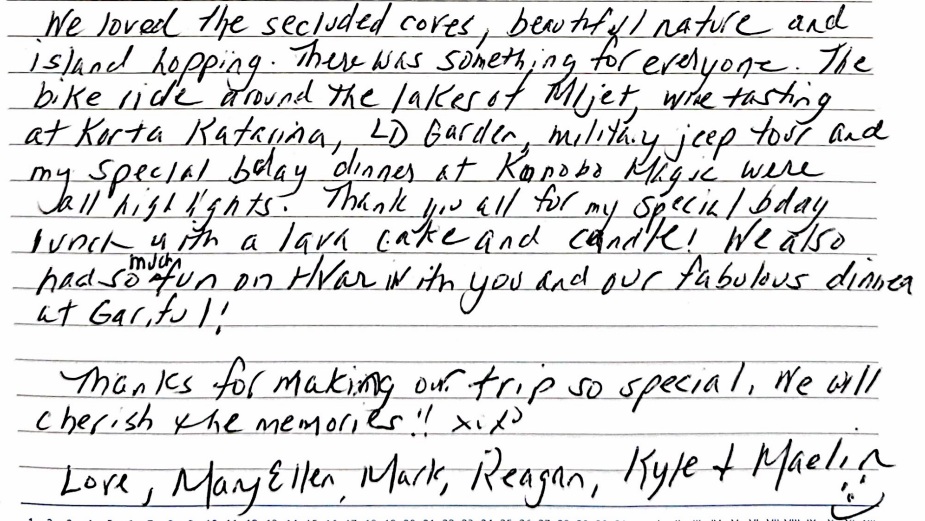 We loved the secluded coves, beautiful nature and
island hopping. There was something for everyone. The
bike ride around the lakes of Mljet, wine tasting
at Korta Katarina, LD Garden, military jeep tour and
my special bday dinner at Konoba Magic were
all highlights. Thank you all for my special bday
lunch with a lava cake and candle! We also
had so much fun on Hvar with you and our fabulous dinner
at Gariful!
Thanks for making our trip so special. We will
cherish the memories!!
Love, MaryEllen, Mark, Reagan, Kyle + Maelin